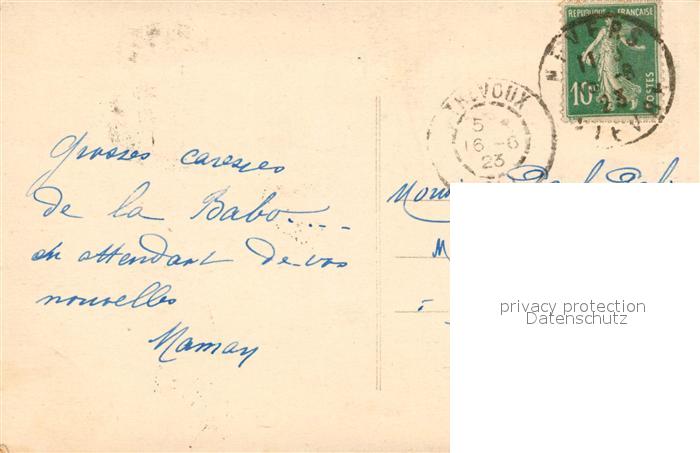 Grosses caresses
de la Babo....
en attendant de vos
nouvelles
Maman
REPUBLIQUE FRANÇAISE
10c
POSTES
NEVERS
11
-6
23
NIEVRE
TREVOUX
5 *
16 -6
23
privacy protection
Datenschutz